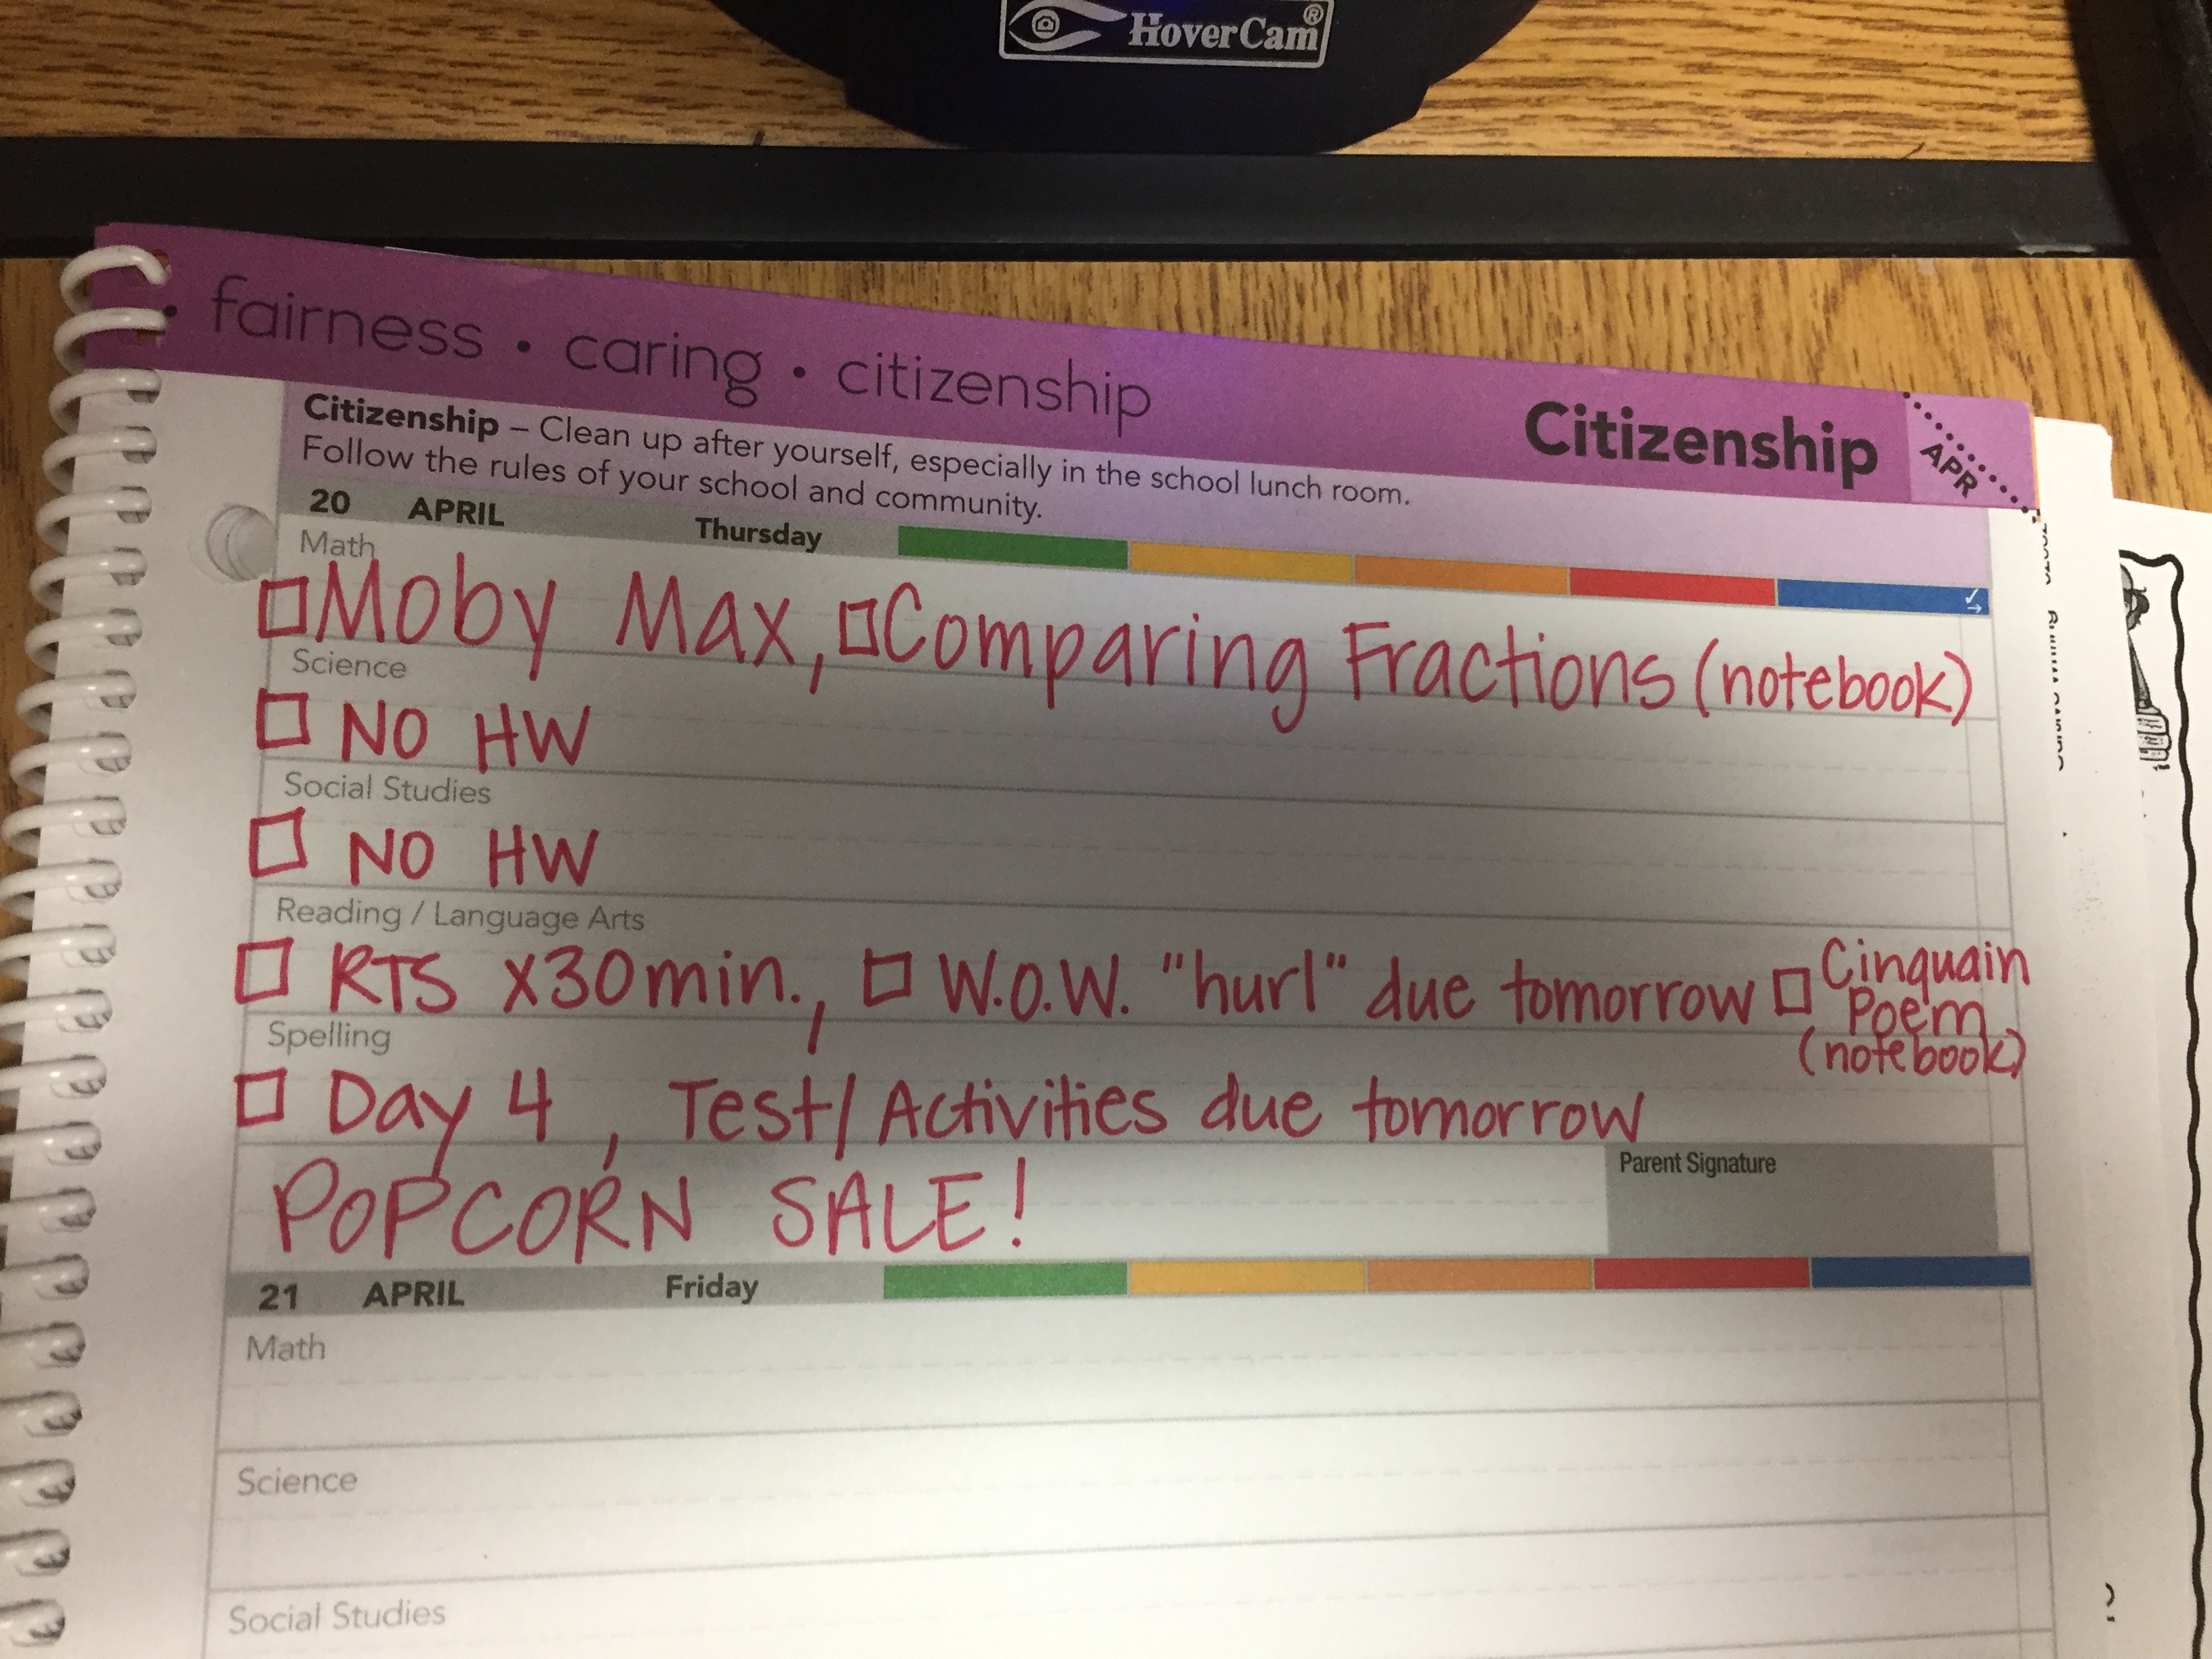 HoverCam®
• fairness • caring • citizenship
Citizenship
APR
Citizenship – Clean up after yourself, especially in the school lunch room.
Follow the rules of your school and community.
20 APRIL Thursday
Math
Moby Max, Comparing Fractions (notebook)
Science
NO HW
Social Studies
NO HW
Reading / Language Arts
RTS x30min., W.O.W. "hurl" due tomorrow Cinquain
Poem
(notebook)
Spelling
Day 4, Test/Activities due tomorrow
POPCORN SALE!
Parent Signature
21 APRIL Friday
Math
Science
Social Studies